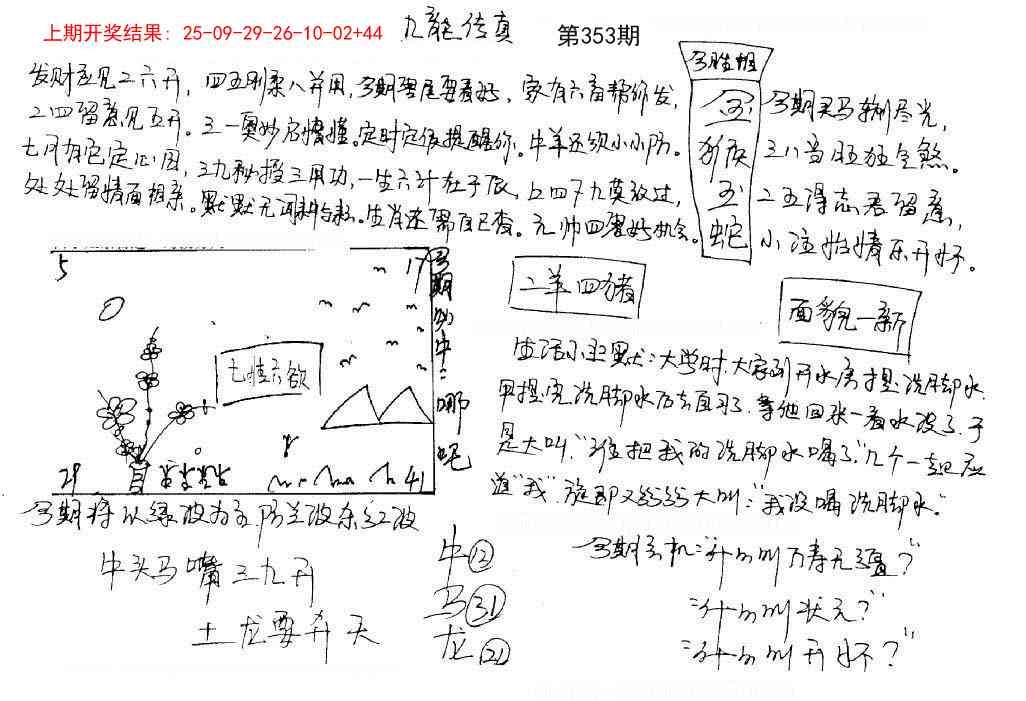 上期开奖结果：25-09-29-26-10-02+44
九龍传真
第353期
发财查见二六开，四五刚柔八并用，今期要尾要看好，家有六畜帮你发，
二四留意见五开。三一奥妙后慢慢。定时定位提醒你。牛羊还须小小防。
七月相定定心图，三九秘授三用功，一生六计在于辰，上四下九莫放过，
处处留情面相亲。默默无词。生肖还需自己查。元帅四留好机会。
今胜组
金
猴
玉
蛇
今期买马输尽光，
三八当旺狂全煞。
二五得志君留意，
小注怡情乐开怀。
二羊四猪
面貌一新
5
17
29
41
七情六欲
今期必中：哪吒
生活小幽默：大学时，大家到开水房提洗脚水，
甲提完洗脚水后去自习了，等他回来一看水没了，于
是大叫，“谁把我的洗脚水喝了”，几个一起应
道“我”，旋即又纷纷大叫：“我没喝洗脚水。”
今期将以绿波为主，防兰波杀红波
牛头马嘴三九开
土龙要升天
牛⑫
马㉛
龙㉑
今期玄机：“什么叫万寿无疆？”
：“什么叫状元？”
：“什么叫开怀？”